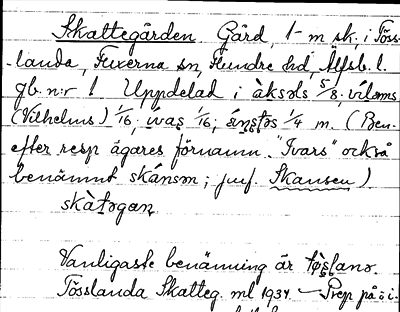 Skattegården Gård, 1 m sk, i Töss-
-landa, Fuxerna sn, Flundre hd, Älfsb. l.
gb. n:r 1 Uppdelad i àksəls 5/8, vìləms
(Vilhelms) 1/16, ìvaṣ 1/16, 1/4 m. (Ben.
efter resp ägares förnamn. "Ivars" också
benämnt skánsəṇ; jmf. Skansen)
skàtəgaṇ
Vanligaste benämning är tǿṣlanə.
Tösslanda Skatteg. ml 1934. Prep på o i.